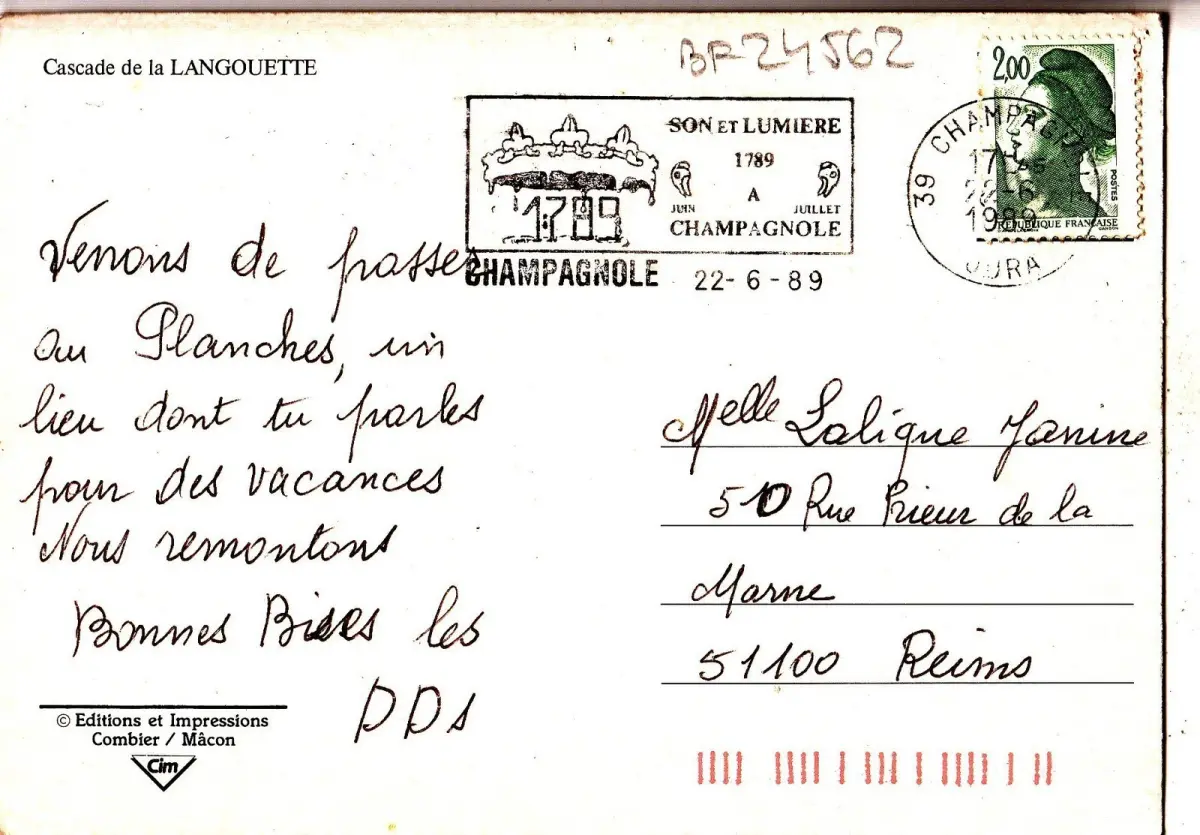 Cascade de la LANGOUETTE
BF 24562
SON ET LUMIERE
1789
A
JUIN JUILLET
CHAMPAGNOLE
1789
CHAMPAGNOLE 22-6-89
2,00
POSTES
REPUBLIQUE FRANÇAISE
39 CHAMPAGN
17H45
22-6
1989
JURA
Venons de passer
au Planches, un
lieu dont tu parles
pour des vacances
Nous remontons
Bonnes Bises les
DDs
Melle Lalique Janine
510 Rue Prieur de la
Marne
51100 Reims
© Editions et Impressions
Combier / Mâcon
Cim